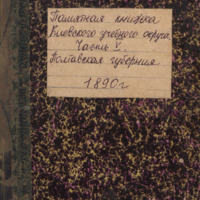 Памятная книжка
Киевского учебного округа
Часть V.
Полтавская губерния
1890г